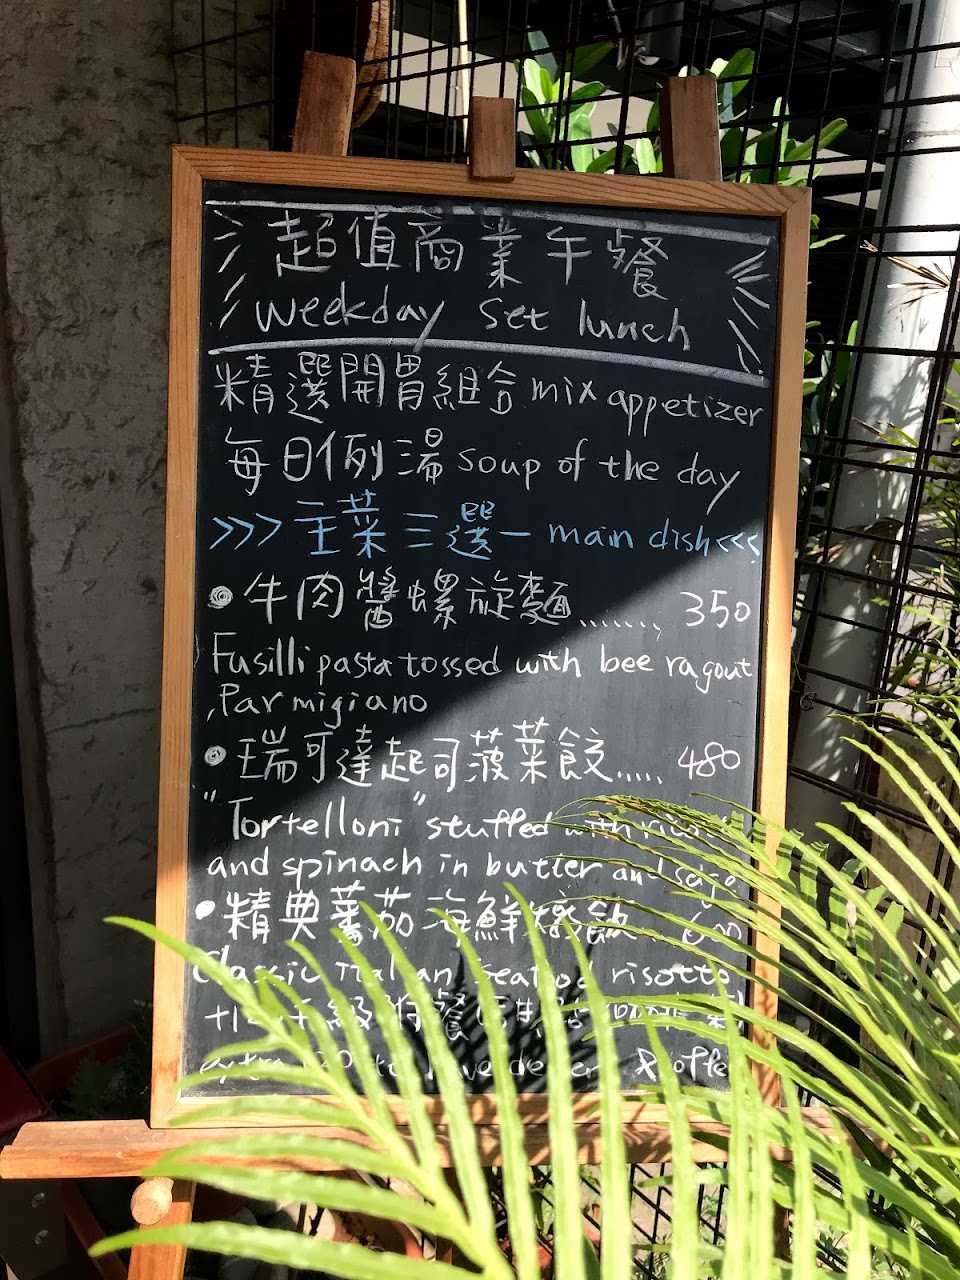 超值商業午餐
weekday set lunch
精選開胃組合 mix appetizer
每日例湯 soup of the day
>>> 主菜三選一 main dish <<<
• 牛肉醬螺旋麵........ 350
Fusilli pasta tossed with bee ragout
, Parmigiano
• 瑞可達起司菠菜餃..... 480
"Tortelloni" stuffed with
and spinach in butter and
• 精典蕃茄海鮮燉飯
Classic Italian seafood risotto
級附餐
to have &